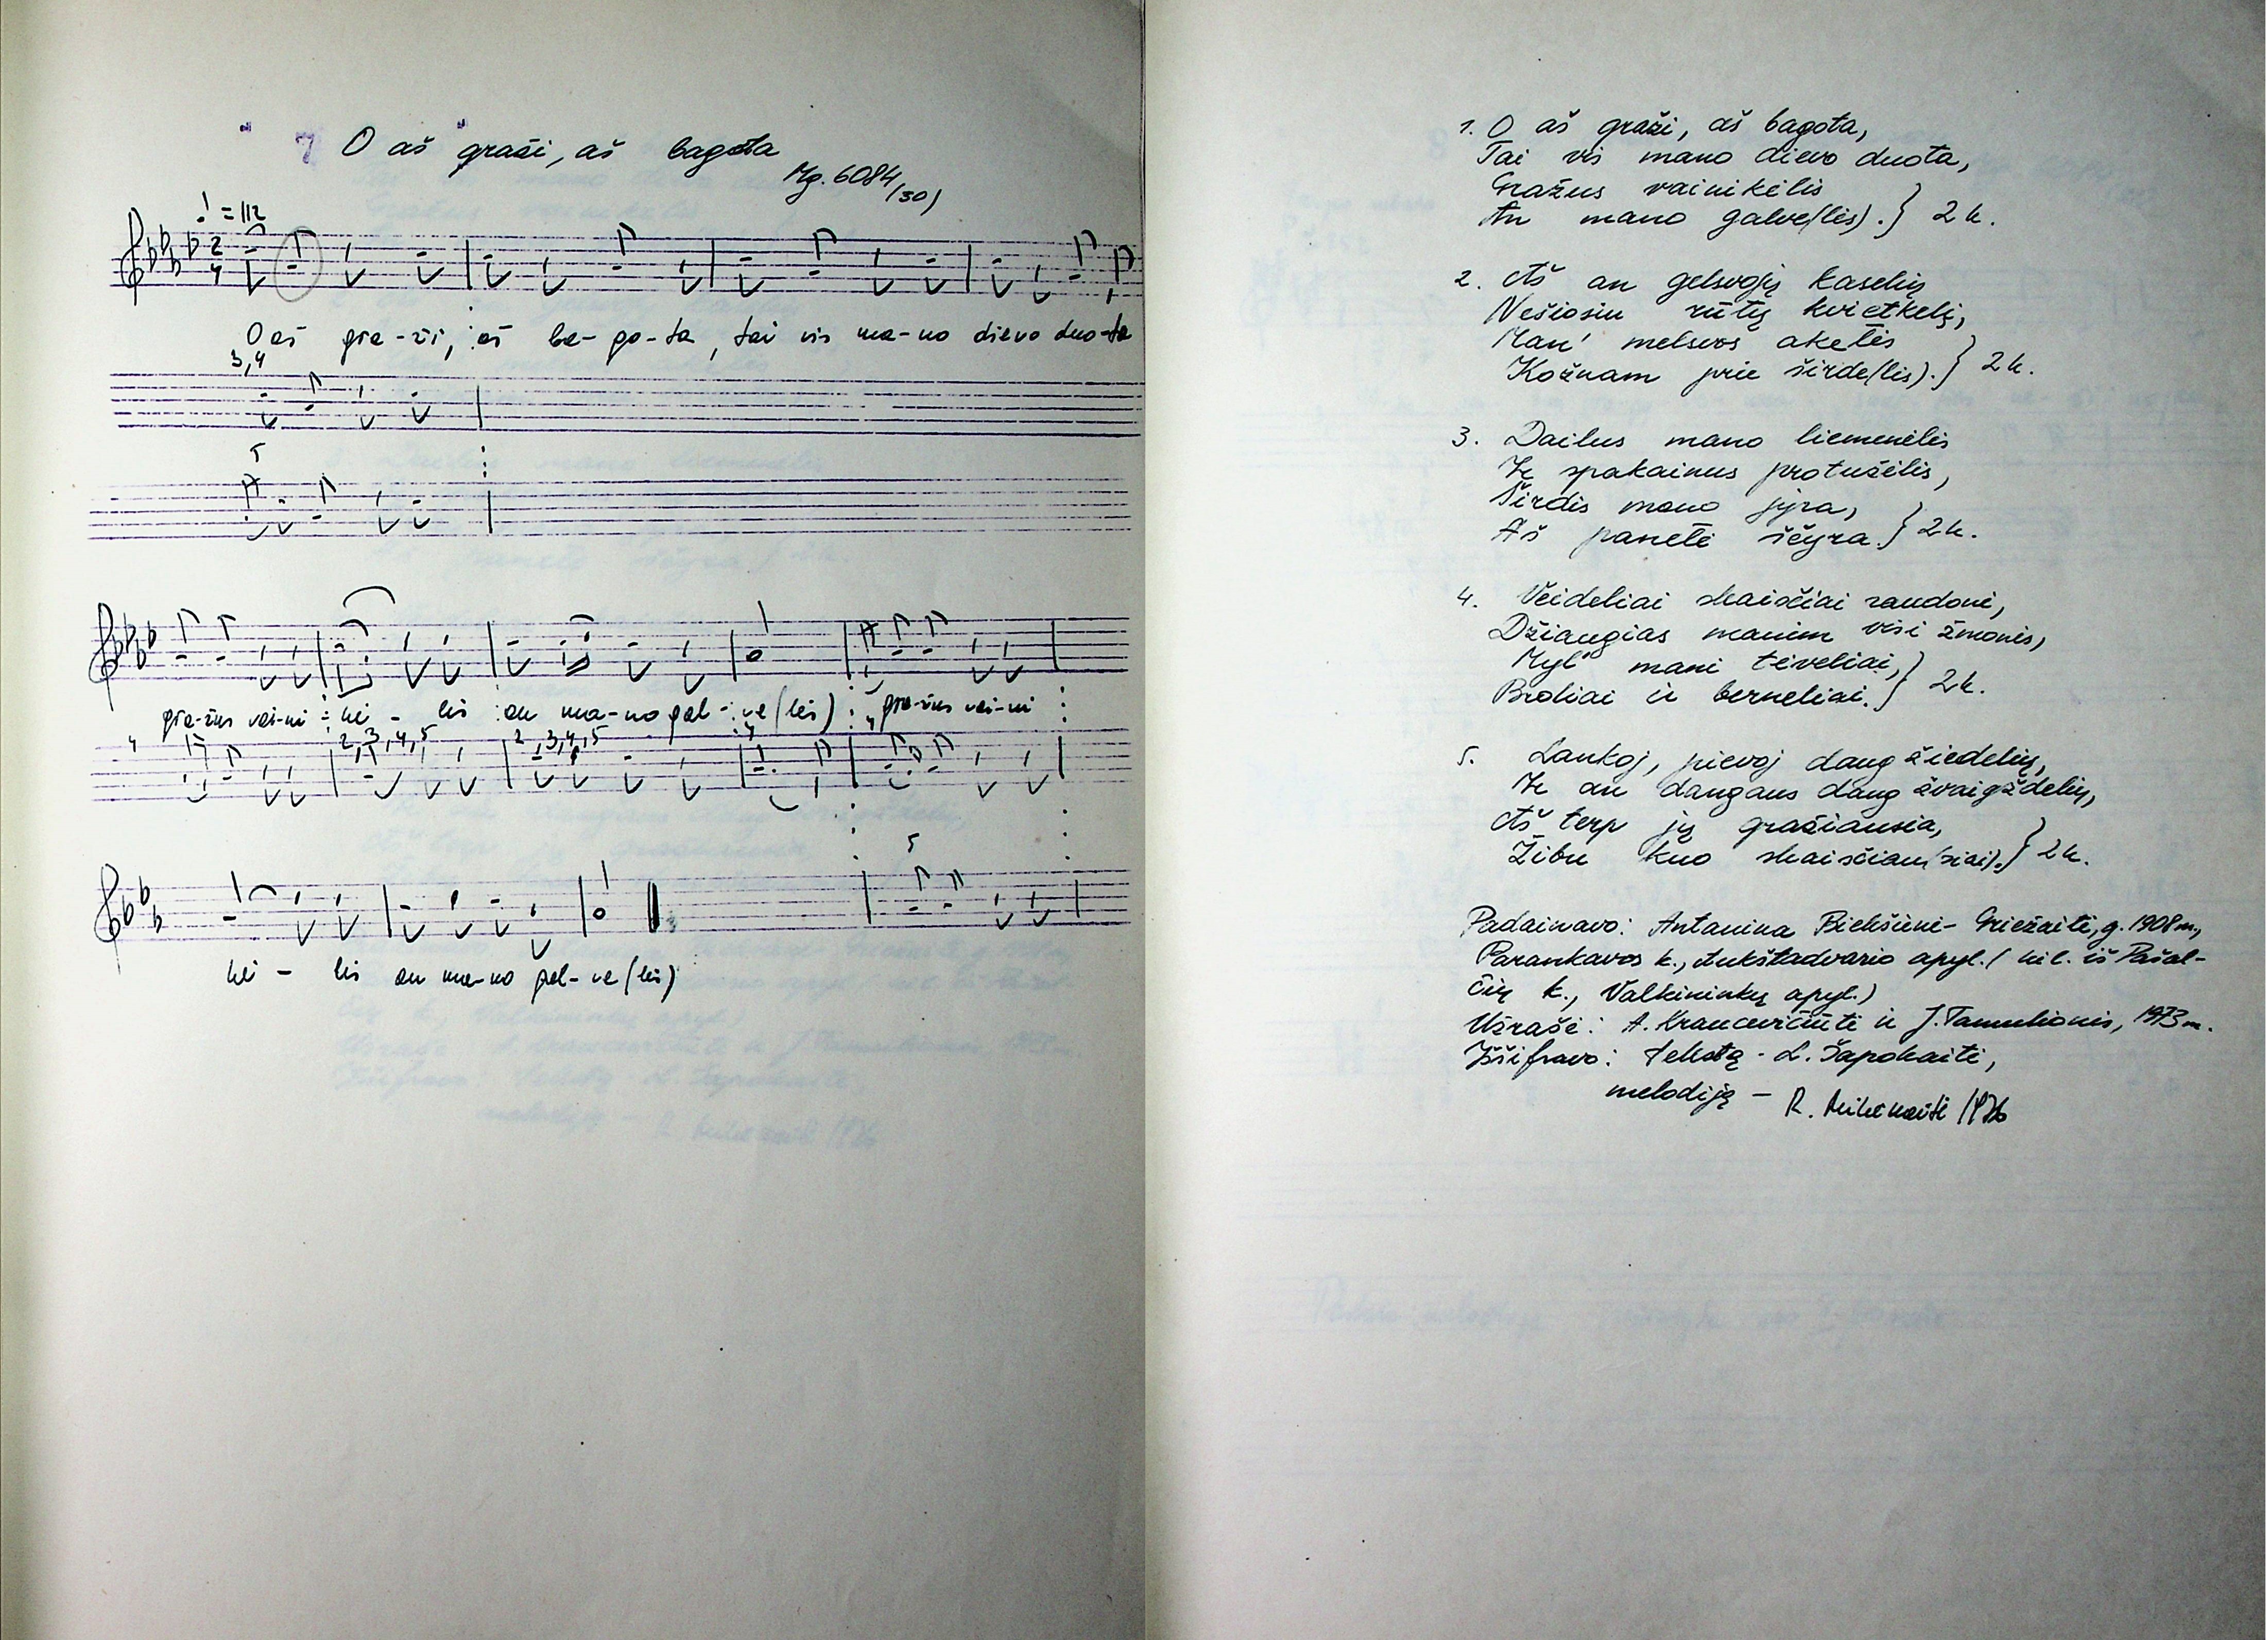 7 O aš graži, aš bagota
Mg. 6084/30)
♩ = 112
2
4
O aš gra-ži, aš ba-go-ta, tai vis ma-no dievo duo-ta
3,4
5
gra-žus vai-ni-kė-lis an ma-no gal-ve(lės) gra-žus vai-ni
4
2,3,4,5
2,3,4,5
4
4
5
kė-lis an ma-no gal-ve(lės)
1. O aš graži, aš bagota,
Tai vis mano dievo duota,
Gražus vainikėlis
An mano galve(lės).} 2 k.
2. Aš an gelsvojų kaselių
Nešiosiu rūtų kvietkelį,
Man' melsvos akelės
Kožnam prie širde(lis).} 2 k.
3. Dailus mano liemenėlis
Ir spakainus protužėlis,
Širdis mano jyra,
Aš panelė ščyra.} 2 k.
4. Veideliai skaisčiai raudoni,
Džiaugias manim visi žmonis,
Myl' mani tėveliai,
Broliai ir berneliai.} 2 k.
5. Lankoj, pievoj daug žiedelių,
Ir an dangaus daug žvaigždelių,
Aš terp jų gražiausia,
Žibu kuo skaisčiau(siai).} 2 k.
Padainavo: Antanina Biekšienė - Griežaitė, g. 1908 m.,
Parankavos k., Aukštadvario apyl. (kil. iš Pašal-
čių k., Valkininkų apyl.)
Užrašė: A. Krancevičiūtė ir J. Tamulionis, 1973 m.
Iššifravo: tekstą - L. Sapokaitė,
melodiją - R. 1976